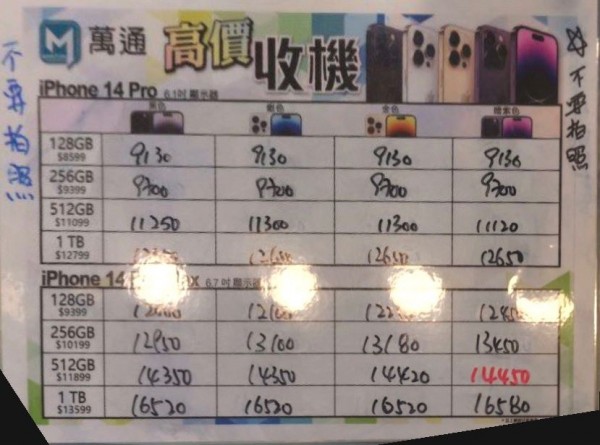 萬通 高價收機
不要拍照
☆不要拍照
iPhone 14 Pro 6.1吋 顯示器
黑色 銀色 金色 暗紫色
128GB $8599 9130 9130 9130 9130
256GB $9399 9700 9700 9700 9700
512GB $11099 11250 11300 11300 11120
1 TB $12799 12650
iPhone 14 6.7吋 顯示器
128GB $9399
256GB $10199 12950 13100 13180 13450
512GB $11899 14350 14350 14420 14450
1 TB $13599 16520 16520 16520 16580